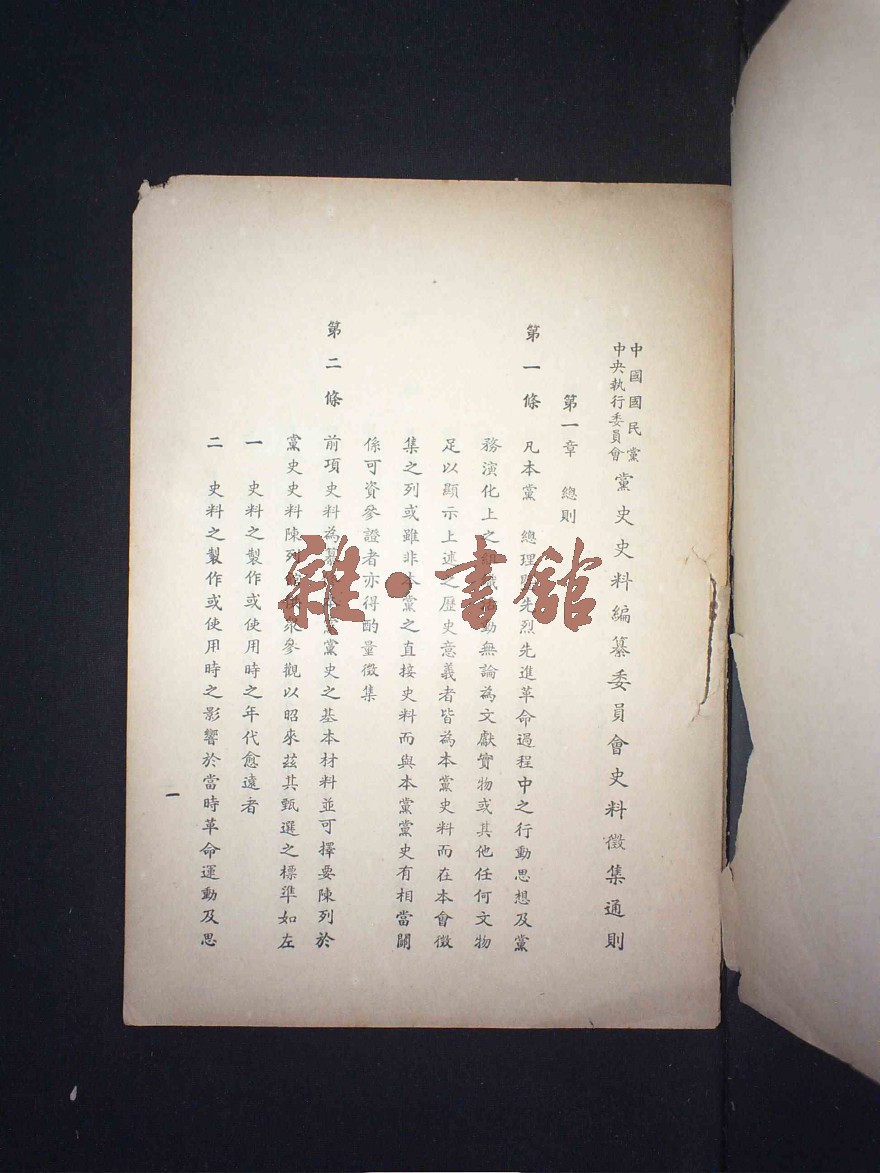 中國國民黨
中央執行委員會
黨史史料編纂委員會史料徵集通則
第一章 總則
第一條 凡本黨 總理與先烈先進革命過程中之行動思想及黨
務演化上之組織活動無論為文獻實物或其他任何文物
足以顯示上述之歷史意義者皆為本黨史料而在本會徵
集之列或雖非本黨之直接史料而與本黨黨史有相當關
係可資參證者亦得酌量徵集
第二條 前項史料為纂黨史之基本材料並可擇要陳列於
黨史史料陳列眾參觀以昭來茲其甄選之標準如左
一 史料之製作或使用時之年代愈遠者
二 史料之製作或使用時之影響於當時革命運動及思
一
雜·書館